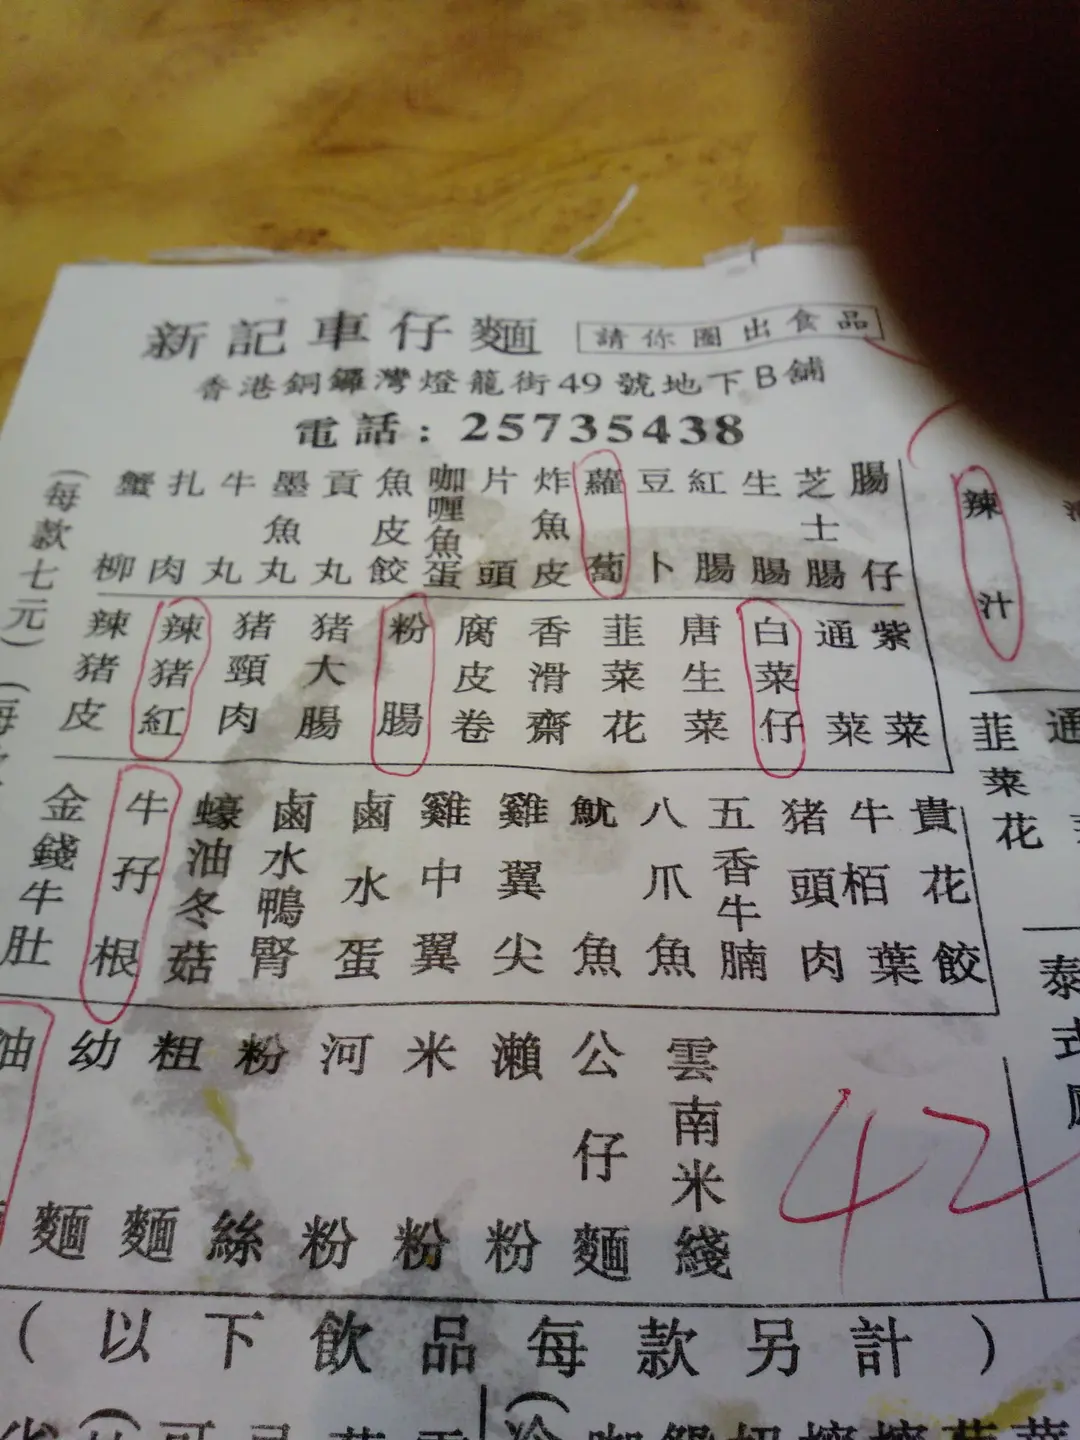 新記車仔麵 請你圈出食品
香港銅鑼灣燈籠街49號地下B舖
電話：25735438
(每款七元)
蟹柳
扎肉
牛丸
墨魚丸
貢丸
魚皮餃
咖喱魚蛋
片頭
炸魚皮
蘿蔔
豆卜
紅腸
生腸
芝士腸
腸仔
辣汁
辣豬皮
辣豬紅
豬頸肉
豬大腸
粉腸
腐皮卷
香滑齋
韭菜花
唐生菜
白菜仔
通菜
紫菜
韭菜花
通
金錢牛肚
牛孖根
蠔油冬菇
鹵水鴨腎
鹵水蛋
雞中翼
雞翼尖
魷魚
八爪魚
五香牛腩
豬頭肉
牛栢葉
貴花餃
泰式
油
幼麵
粗麵
粉絲
河粉
米粉
瀨粉
公仔麵
雲南米綫
42
(以下飲品每款另計)